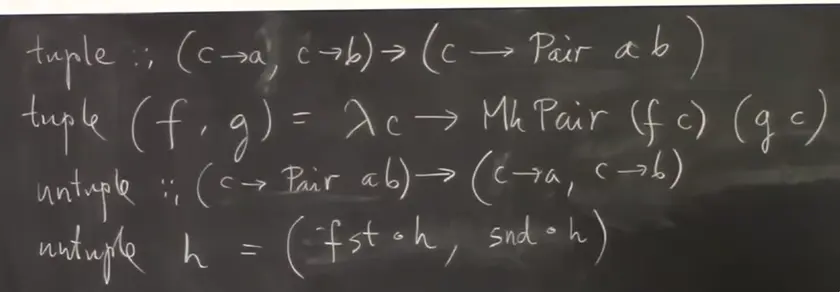 tuple :: (c→a, c→b) → (c → Pair a b)
tuple (f, g) = λc → Mk Pair (f c) (g c)
untuple :: (c → Pair a b) → (c→a, c→b)
untuple h = (fst ∘ h, snd ∘ h)